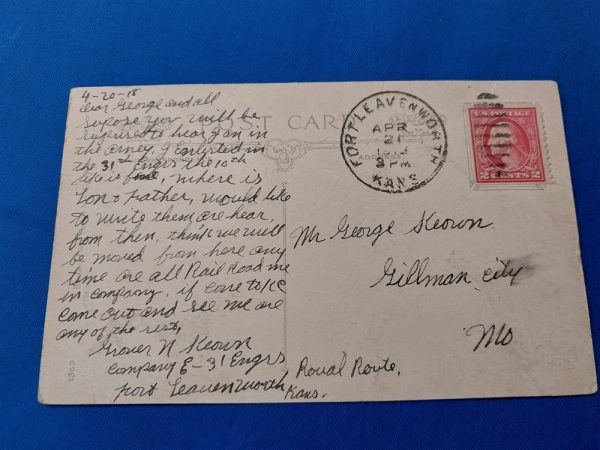 4-20-18
Dear George and all
supose you will be
suprised to hear I an in
the armey, I enlysted in
the 31st Engrs the 10th
like is fine, where is
Tom & Father, would like
to write them are hear
from them, think we will
be moved from here any
time are all Rail Road me
in company, if come to KC
come out and see me are
any of the rest,
Grover N Keown
Company E-31 Engrs
Fort Leavenworth,
Kans.
POST CARD
ADDRESS
FORT LEAVENWORTH
APR
21
3 PM
KANS
U.S. POSTAGE
2 CENTS 2
Mr George Keown
Gillman, City
Mo
Roual Route,